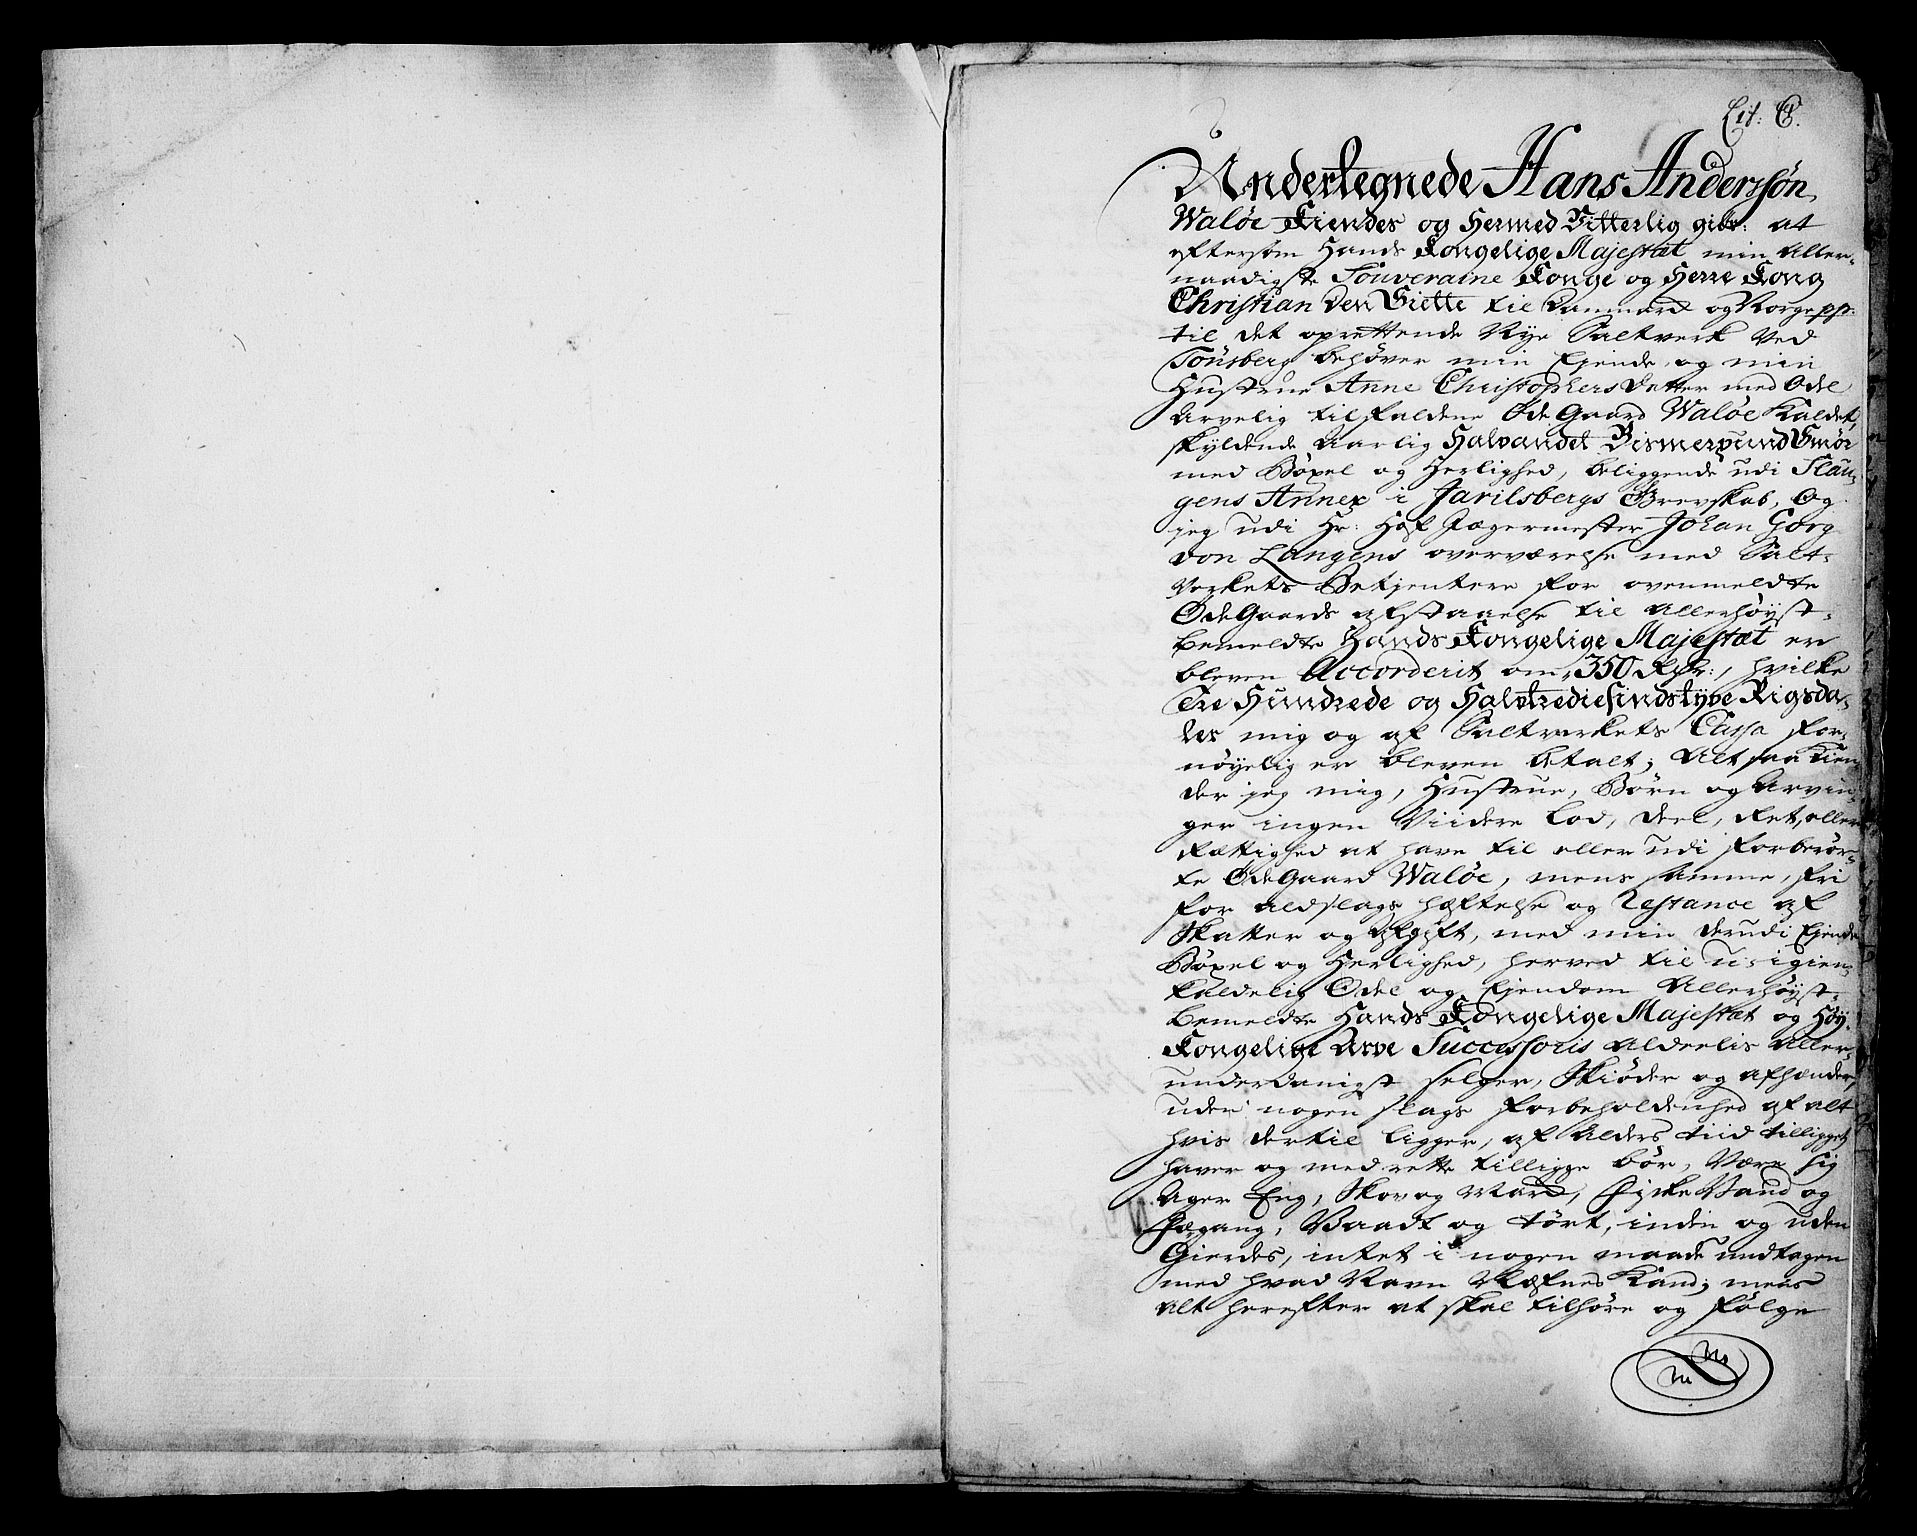 Lit: C.
Undertegnede Hans Anderssøn
Waløe Kiendes og Hermed Vitterlig giør: at
eftersom Hands Kongelige Majestæt min Aller-
naadigste Souveraine Konge og Herre Kong
Christian den Siette til Danmark og Norge pp:
til det oprettende Nye Saltverk ved
Tønsberg behøver min Ejende, og min
Hustrue Anne Christophers datter med Odel
Arvelig tilfaldene Øde Gaard Waløe kaldet,
skyldende aarlig Halvandet Bismerpund Smør
med Bøxel og Herlighed, beliggende udi Slau-
gens Annex i Jarilsbergs Grevskab, Og
jeg udi Hr: Hof Jægermester Johan Georg
von Langens overværelse med Salt-
Verkets Betjentere for ovenmeldte
Øde Gaards afstaaelse til Allerhøyst-
bemeldte Hands Kongelige Majestæt er
bleven Accorderit om 350 Rdr:, hvilke
Tre Hundrede og Halvtrediesindstyve Rigsda-
ler mig og af Saltverkets Cassa for-
nøyelig er bleven betalt; Alt saa kien-
der jeg mig, Hustrue, Børn og Arvin-
ger ingen Viidere Lod, deel, Ret, eller
Rættighed at have til eller udi forberør-
te Øde Gaard Waløe, mens samme, fri
for aldslags hæftelse og Restance af
Skatter og afgift, med min derudi Ejende
Bøxel og Herlighed, herved til u-igien-
kaldelig Odel og Ejendom Allerhøyst-
bemeldte Hands Kongelige Majestæt og Høy-
Kongelige Arve Successoris aldeelis Aller-
underdanigst selger, Skiøder og afhænder,
uden nogen slags forbeholdenhed af alt
hvis dertil ligger, af Alders tiid tilligget
haver og med rette tilligge bør, Være sig
Ager Eng, Skov og Mark, Fiske Vand og
Fægang, Vaadt og tørt, inden og uden
Gierdes, intet i nogen maade undtagen
med hvad Navn Næfnes kand; mens
alt herefter at skal tilhøre og følge